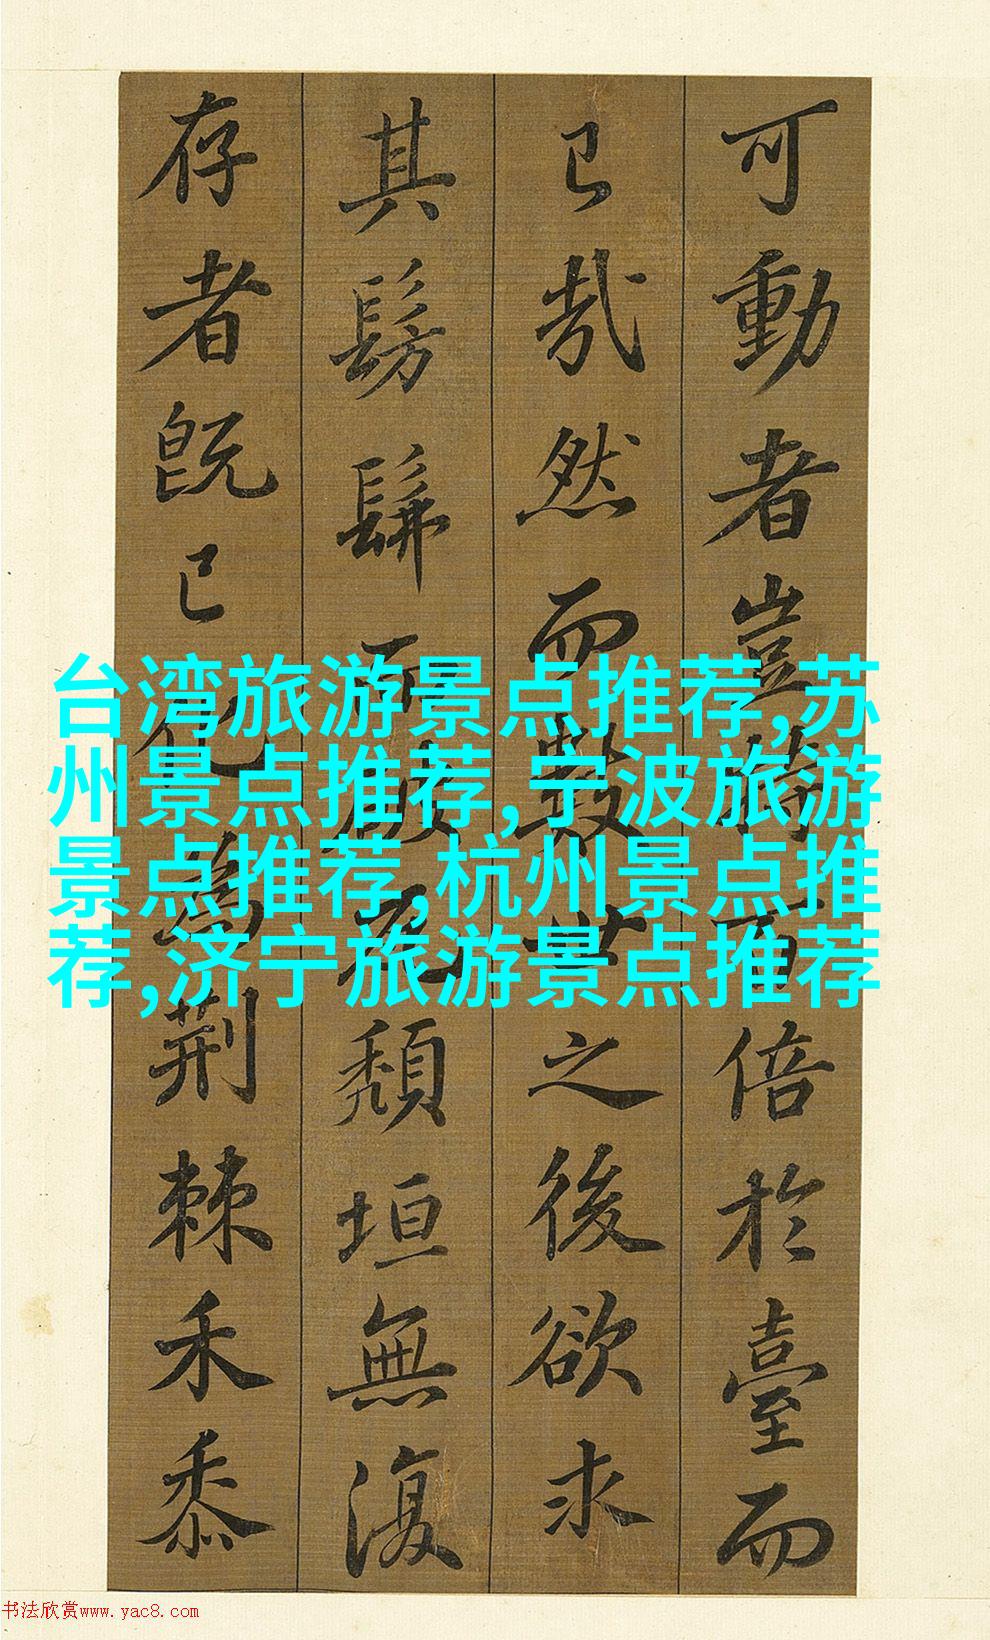 可動者豈特百倍於臺而
已哉然而數世之後欲求
其髣髴而破瓦頹垣無復
存者既已化為荊棘禾黍
台湾旅游景点推荐,苏
州景点推荐,宁波旅游
景点推荐,杭州景点推
荐,济宁旅游景点推荐
书法欣赏www.yac8.com